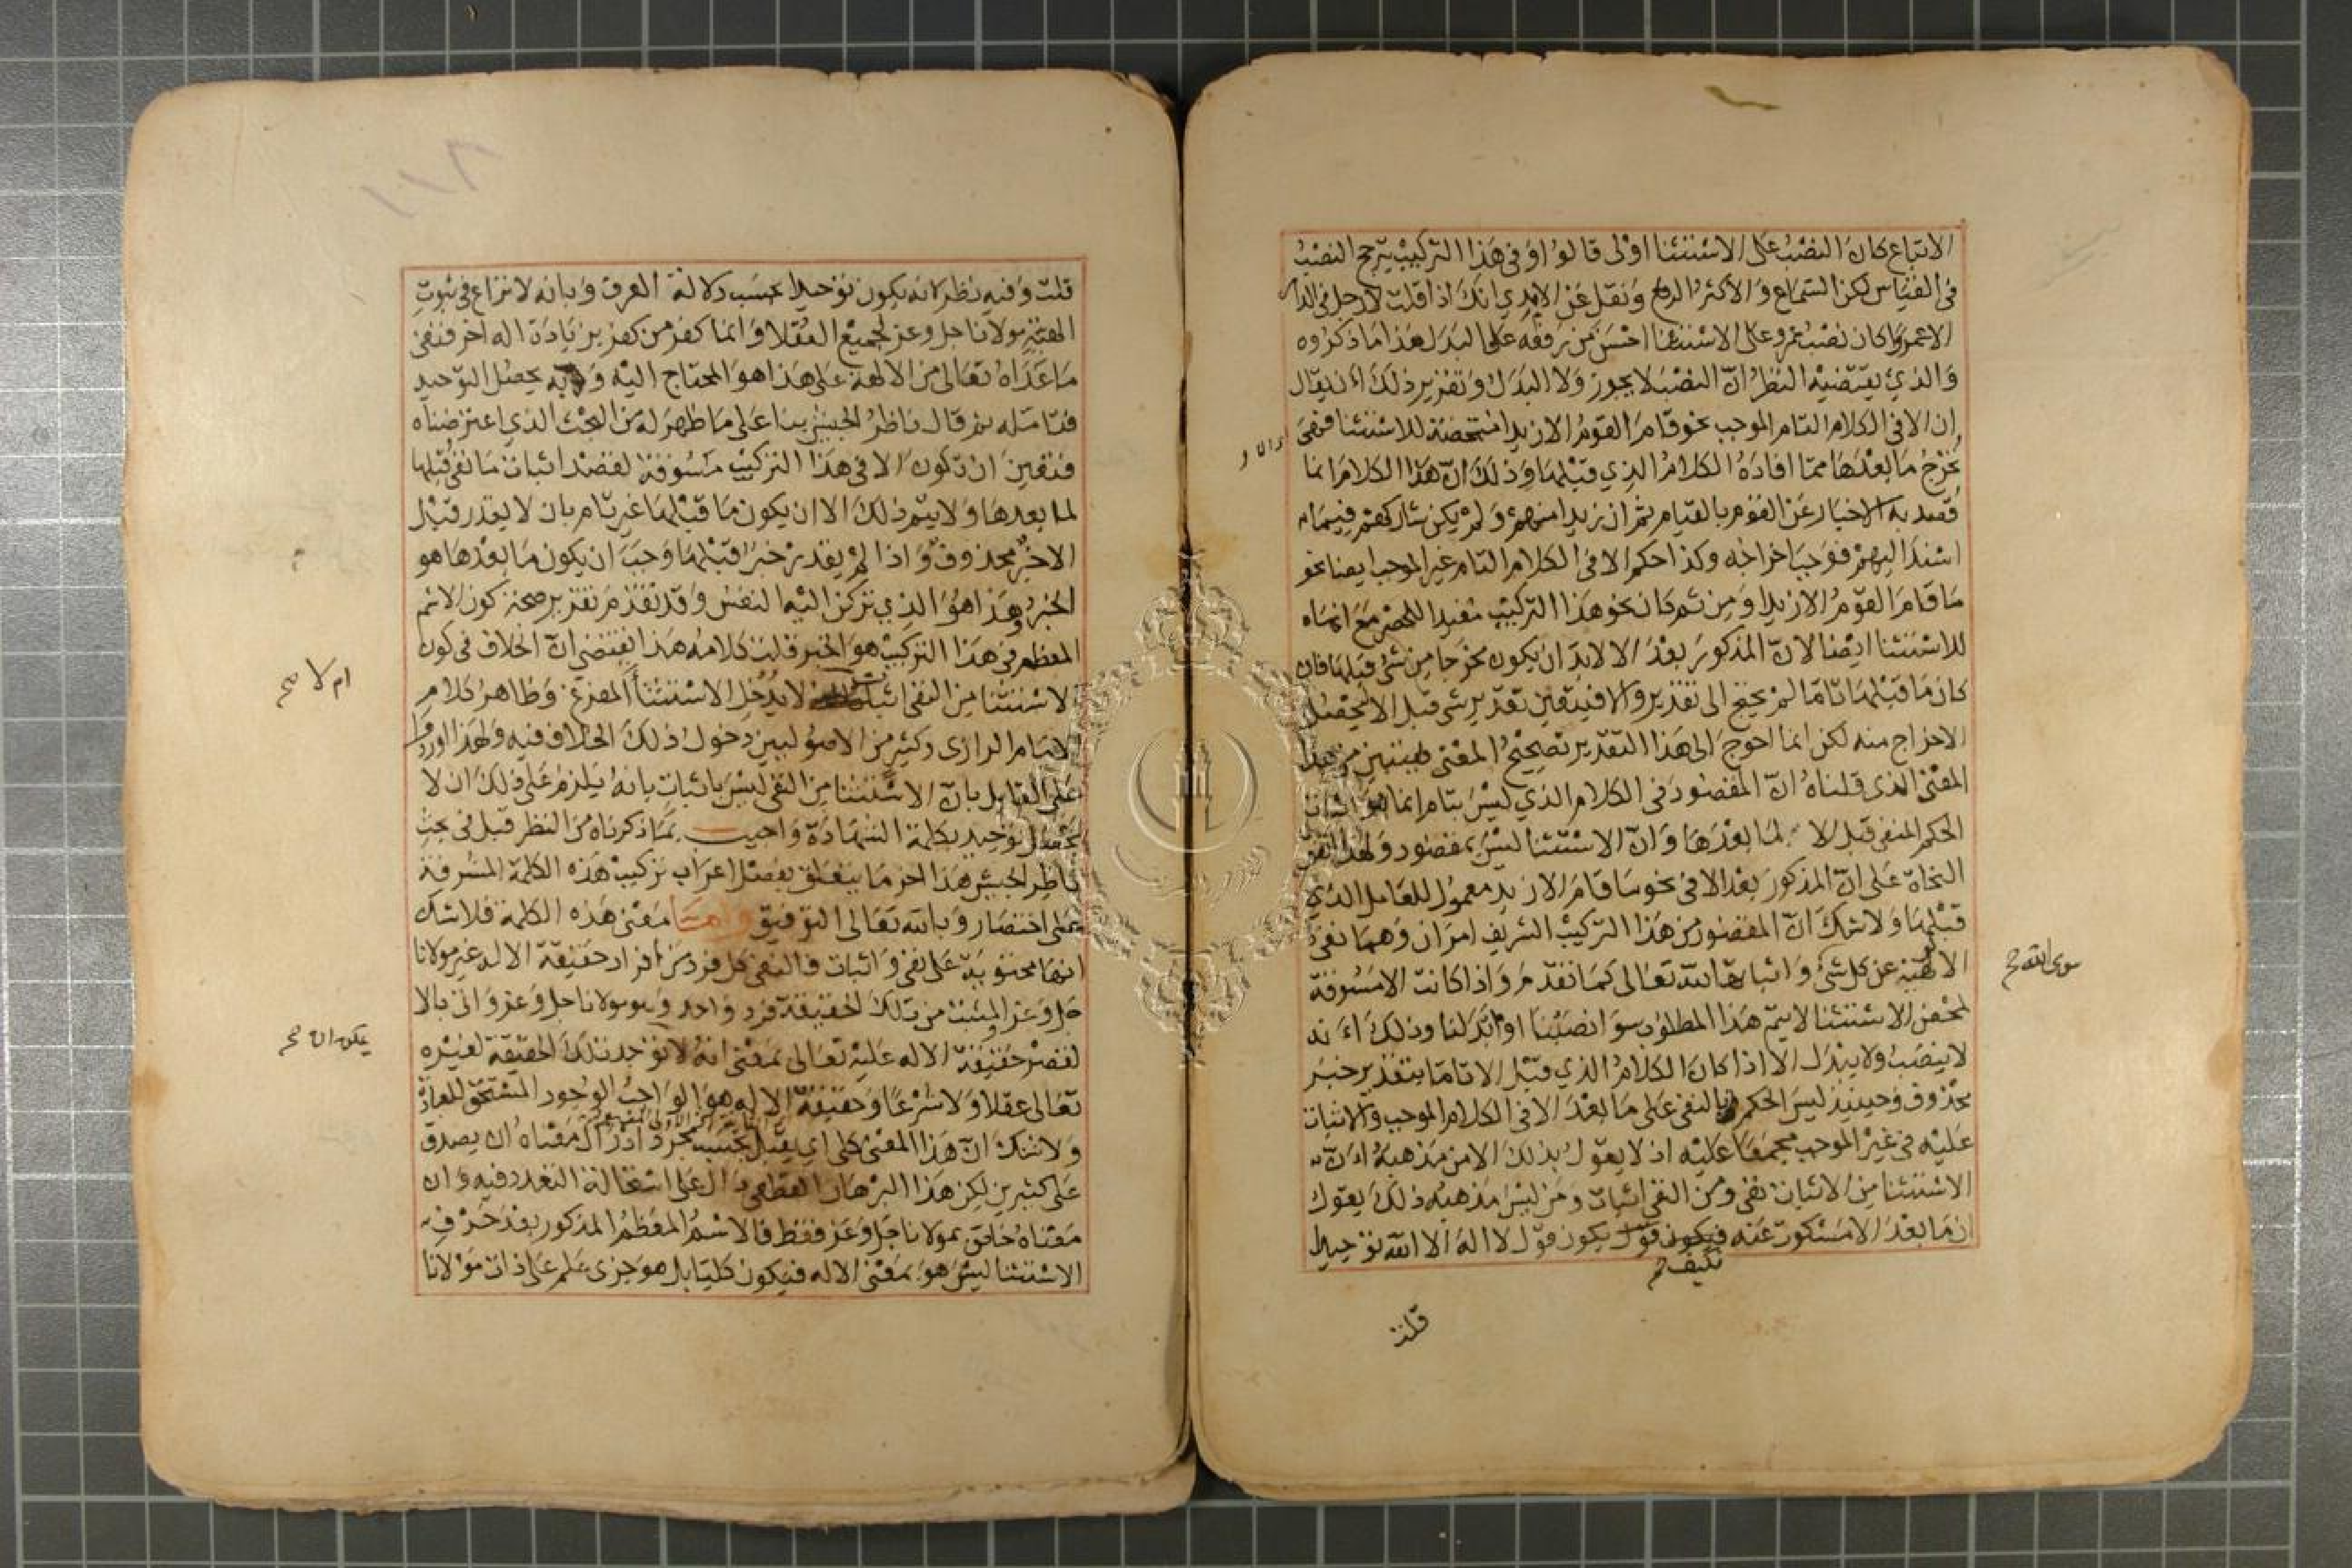 الاتباع كان النصب على الاستثنا اولى قالوا وفى هذا التركيب يترجح النصب
فى القياس لكن السماع والاكثر الرفع ونقل عن الابدي انك اذا قلت لا رجل فى الدار
الا عمروا كان نصب عمرو على الاستثنا احسن من رفعه على البدل هذا ما ذكروه
والذي يقتضيه النظر ان النصب لا يجوز ولا البدل وتقرير ذلك ان يقال
ان الا فى الكلام التام الموجب نحو قام القوم الا زيدا متمحضة للاستثنا فهى
تخرج ما بعدها مما افاده الكلام الذي قبلها وذلك ان هذا الكلام انما
قصد به الاخبار عن القوم بالقيام ثم ان زيدا منهم ولم يكن شاركهم فيما
اسند اليهم فوجب اخراجه وكذا حكم الا فى الكلام التام غير الموجب ايضا نحو
ما قام القوم الا زيدا ومن ثم كان نحو هذا التركيب مفيدا للحصر مع انها
للاستثنا ايضا لان المذكور بعد الا لابد ان يكون مخرجا من شئ قبلها فان
كان ما قبلها تاما لم يحتج الى تقدير والا فيتعين تقدير شى قبل الا ليحصل
الاخراج منه لكن انما احوج الى هذا التقدير تصحيح المعنى فيتبين من هذا
المعنى الذى قلناه ان المقصود فى الكلام الذي ليس بتام انما هو اثبات
الحكم المنفى قبل الا لما بعدها وان الاستثنا ليس بمقصود ولهذا اتفق
النحاة على ان المذكور بعد الا فى نحو ما قام الا زيد معمول للعامل الذي
قبلها ولا شك ان المقصود من هذا التركيب الشريف امران وهما نفى
الالهية عن كل شئ واثباتها لله تعالى كما تقدم واذا كانت الا مسوقة
سوى الله صح
لمحض الاستثنا لا يتم هذا المطلوب سوا نصبنا او ابدلنا وذلك انه
لا ينصب ولا يبدل الا اذا كان الكلام الذي قبل الا تاما بتقدير خبر
محذوف وحينئذ ليس الحكم بالنفى على ما بعد الا فى الكلام الموجب والاثبات
عليه فى غير الموجب مجمعا عليه اذ لا يقول بذلك الا من مذهبه ان
الاستثنا من الاثبات نفى ومن النفى اثبات ومن ليس مذهبه ذلك يقول
ان ما بعد الا مسكوت عنه فيكون قول يكون قول لا اله الا الله توحيدا
فكيف صح
قلت
١١٨
قلت وفيه نظر لانه يكون توحيدا بحسب دلالة العرف وبانه لا نزاع فى ثبوت
الهية مولانا جل وعز لجميع العقلا وانما كفر من كفر بزيادة اله اخر فنفى
ما عداه تعالى من الالهة على هذا هو المحتاج اليه وبه يحصل التوحيد
فتامله ثم قال ناظر الجيش بنا على ما ظهر له من البحث الذي اعترضناه
فتعين ان تكون الا فى هذا التركيب مسوقة لقصد اثبات ما نفى قبلها
لما بعدها ولا يتم ذلك الا ان يكون ما قبلها غير تام بان لا يقدر قبل
الا خبر محذوف واذا لم يقدر خبر قبلها وجب ان يكون ما بعدها هو
الخبر وهذا هو الذي تركن اليه النفس وقد تقدم تقرير صحة كون الاسم
المعظم فى هذا التركيب هو الخبر قلت كلامه هذا يقتضى ان الخلاف فى كون
الاستثنا من النفى اثبات لا يدخل الاستثنا المفرغ وظاهر كلام
ام لا صح
الامام الرازى وكثير من الاصوليين دخول ذلك الخلاف فيه ولهذا اوردوا
على القايل بان الاستثنا من النفى ليس باثبات بانه يلزم على ذلك ان لا
يحصل توحيد بكلمة الشهادة واجيب بما ذكرناه من النظر قبل فى بحث
ناظر الجيش هذا اخر ما يتعلق بفصل اعراب تركيب هذه الكلمة المشرفة
على اختصار وبالله تعالى التوفيق واما معنى هذه الكلمة فلا شك
انها محتوية على نفى واثبات فالمنفى كل فرد من افراد حقيقة الاله غير مولانا
جل وعز والمثبت من تلك الحقيقة فرد واحد وهو مولانا جل وعز واتى بالا
لقصر حقيقة الاله عليه تعالى بمعنى انه لا توجد تلك الحقيقة لغيره
يمكن ان صح
تعالى عقلا ولا شرعا وحقيقة الاله هو الواجب الوجود المستحق للعبادة
ولا شك ان هذا المعنى كلى اي يقبل بحسب مجرد ادراك معناه ان يصدق
على كثيرين لكن هذا البرهان القطعى دال على استحالة التعدد فيه وان
معناه خاص بمولانا جل وعز فقط فالاسم المعظم المذكور بعد حرف
الاستثنا ليس هو بمعنى الاله فيكون كليا بل هو جزى علم على ذات مولانا